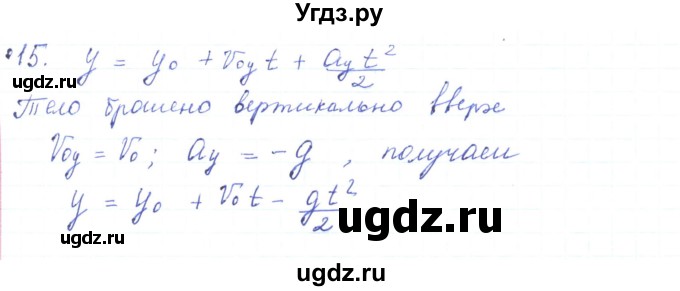 Угдз.ру
№15. y = y₀ + V₀y t + ayt²/2
ugdz.ru
ugdz.ru
Тело брошено вертикально вверх
V₀y = V₀; ay = -g, получаем
y = y₀ + V₀t - gt²/2
ugdz.ru
ugdz.ru
ugdz.ru